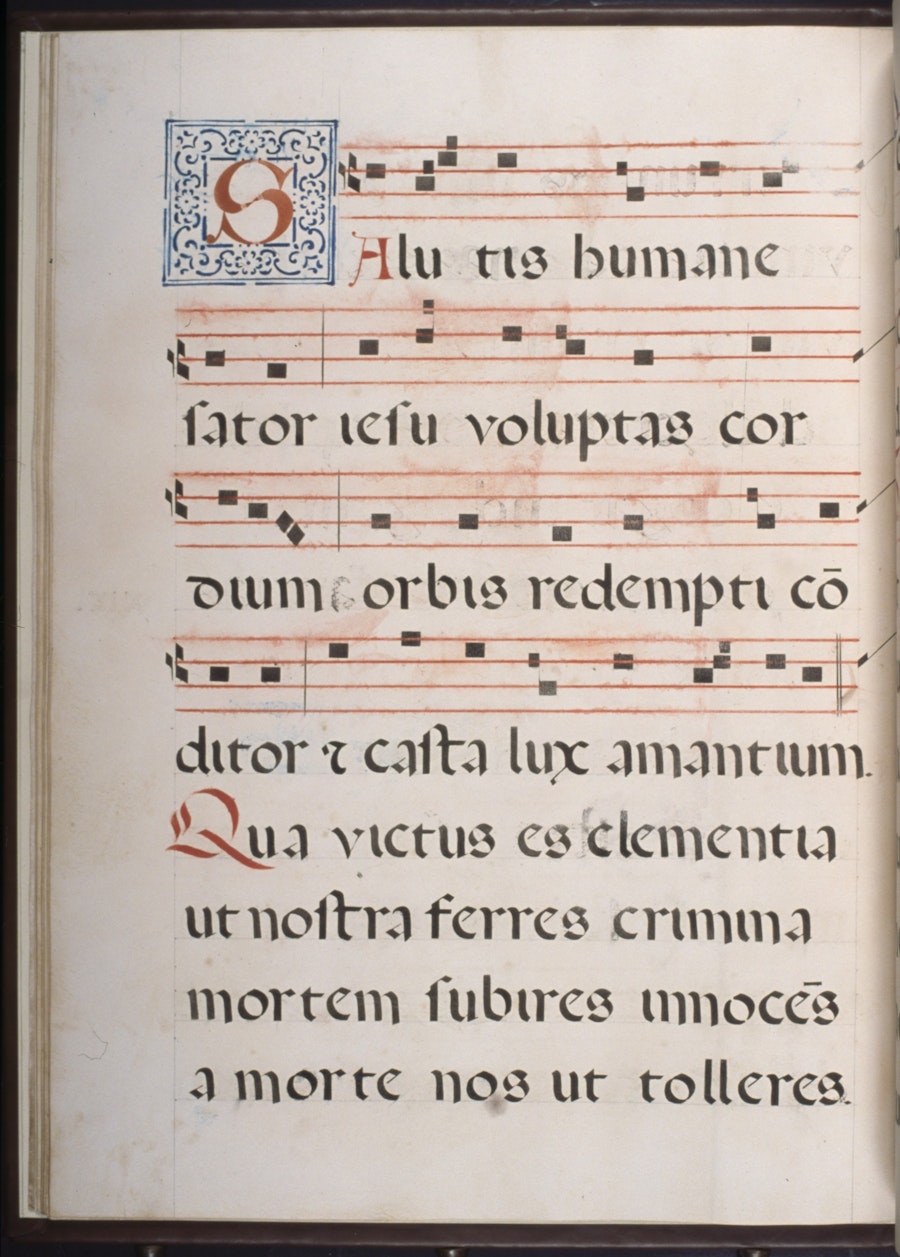 SAlu tis humane
ſator ieſu voluptas cor
dium orbis redempti cō
ditor ⁊ caſta lux amantium.
Qua victus es clementia
ut noſtra ferres crimina
mortem ſubires innocēs
a morte nos ut tolleres.